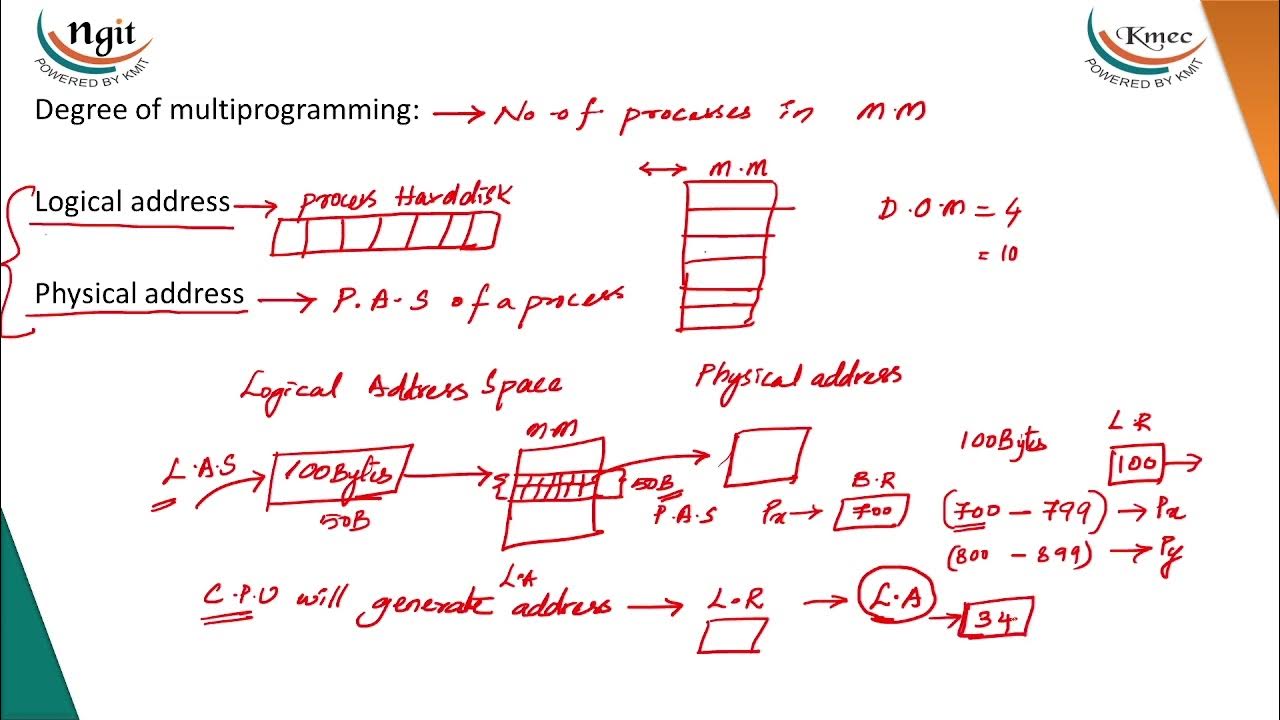 Ngit
POWERED BY KMIT
Kmec
POWERED BY KMIT
Degree of multiprogramming: → No of processes in M.M
Logical address → process Harddisk
M.M
D.O.M = 4
= 10
Physical address → P.A.S of a process
Logical Address Space
Physical address
L.A.S
100Bytes
50B
M.M
50B
P.A.S
Px →
B.R
700
100Bytes
L.R
100
(700 - 799) → Px
(800 - 899) → Py
L.A
C.P.U will generate address → L.R → L.A → 34